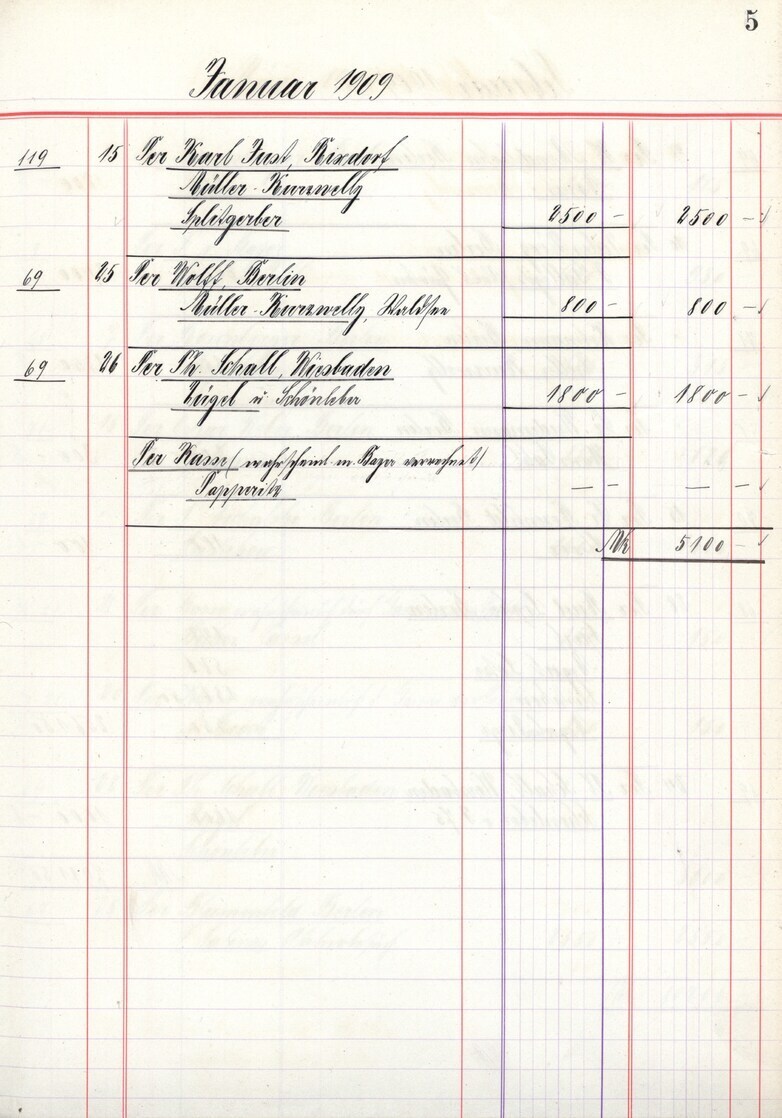 5
Januar 1909
119 15 Per Karl Just, Rixdorf
Müller-Kurzwelly
Splitgerber 2500 – 2500 –
69 25 Per Wolff, Berlin
Müller-Kurzwelly, Waldsee 800 – 800 –
69 26 Per Ph. Schall, Wiesbaden
Zügel u Schönleber 1800 – 1800 –
Per (wahrscheinl. m. verrechnet)
Papperitz — – — –
Mk 5100 –